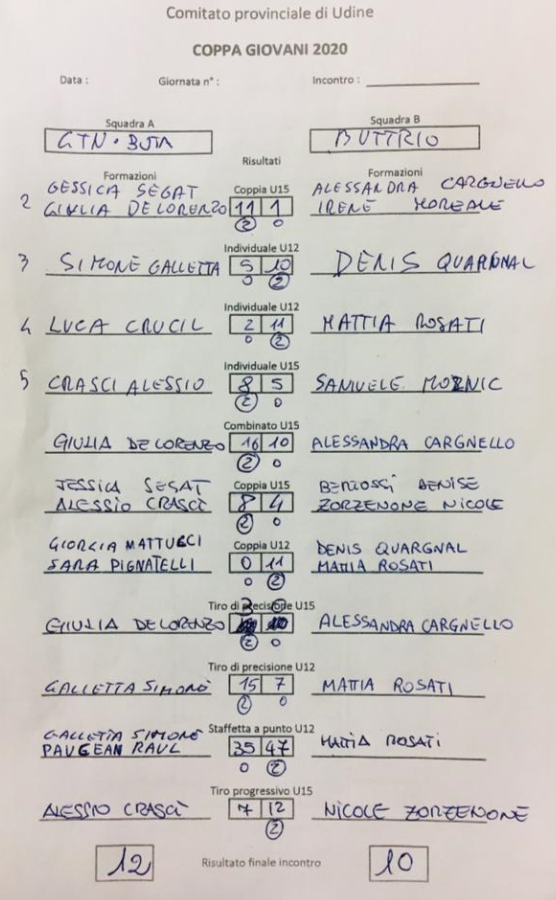 Comitato provinciale di Udine
COPPA GIOVANI 2020
Data : Giornata n° : Incontro :
Squadra A Squadra B
GTN · BUIA BUTTRIO
Risultati
Formazioni Formazioni
2 GESSICA SEGAT Coppia U15 ALESSANDRA CARGNELLO
GIULIA DE LORENZO 11 1 IRENE MOREALE
2 0
Individuale U12
3 SIMONE GALLETTA 5 10 DENIS QUARGNAL
0 2
Individuale U12
4 LUCA CRUCIL 2 11 MATTIA ROSATI
0 2
Individuale U15
5 CRASCI ALESSIO 8 5 SAMUELE
2 0
Combinato U15
GIULIA DE LORENZO 16 10 ALESSANDRA CARGNELLO
2 0
JESSICA SEGAT Coppia U15 BERTOSSI DENISE
ALESSIO CRASCÌ 8 4 ZORZENONE NICOLE
2 0
GIORGIA MATTUCCI Coppia U12 DENIS QUARGNAL
SARA PIGNATELLI 0 11 MATTIA ROSATI
2
Tiro di precisione U15
3 0
GIULIA DE LORENZO ALESSANDRA CARGNELLO
2 0
Tiro di precisione U12
GALLETTA SIMONE 15 7 MATTIA ROSATI
2 0
GALLETTA SIMONE Staffetta a punto U12
PAUGEAN RAUL 35 47 MATTIA ROSATI
0 2
Tiro progressivo U15
ALESSIO CRASCÌ 7 12 NICOLE ZORZENONE
2
12 Risultato finale incontro 10